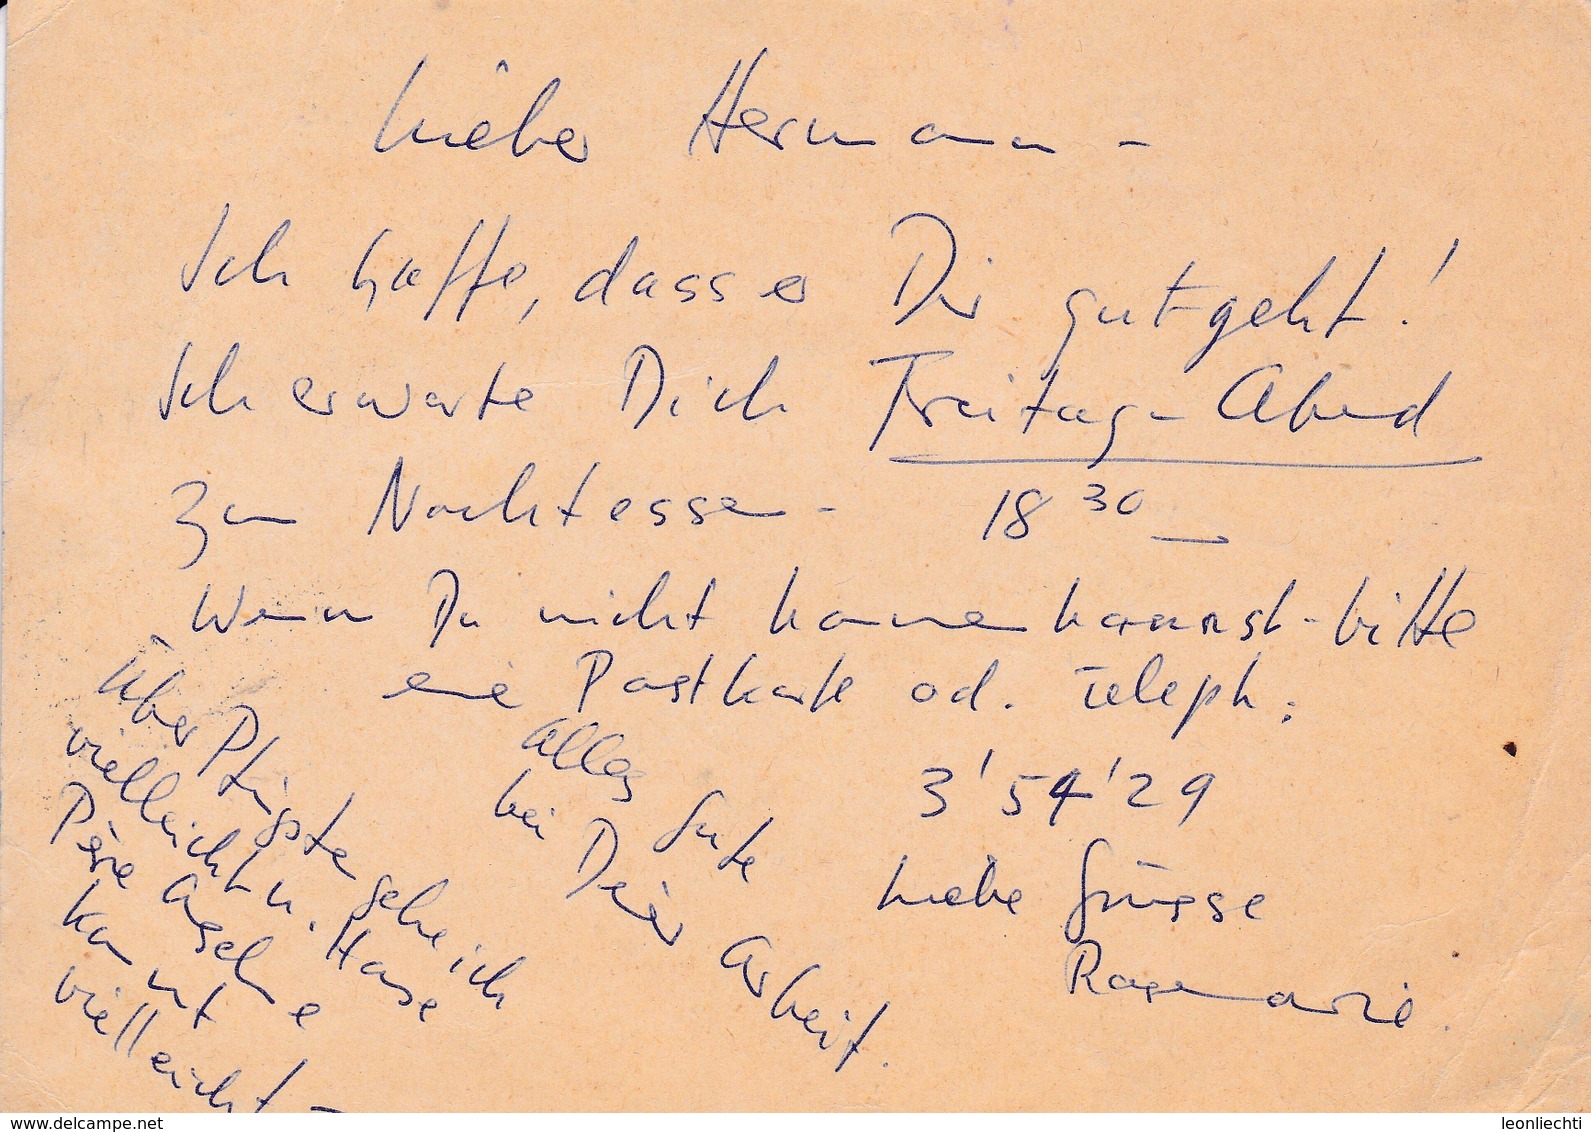 Lieber Hermann -
Ich hoffe, dass es Dir gut geht!
Ich erwarte Dich Freitag-Abend
zum Nachtessen - 18 30
Wenn Du nicht kommen kannst - bitte
eine Postkarte od. Teleph:
3'54'29
Liebe Grüsse
Rosemarie.
Alles Gute
bei Deiner Arbeit.
Über Pfingsten gehe ich
vielleicht n. Hause
Père
kommt
vielleicht -
www.delcampe.net
leonliechti